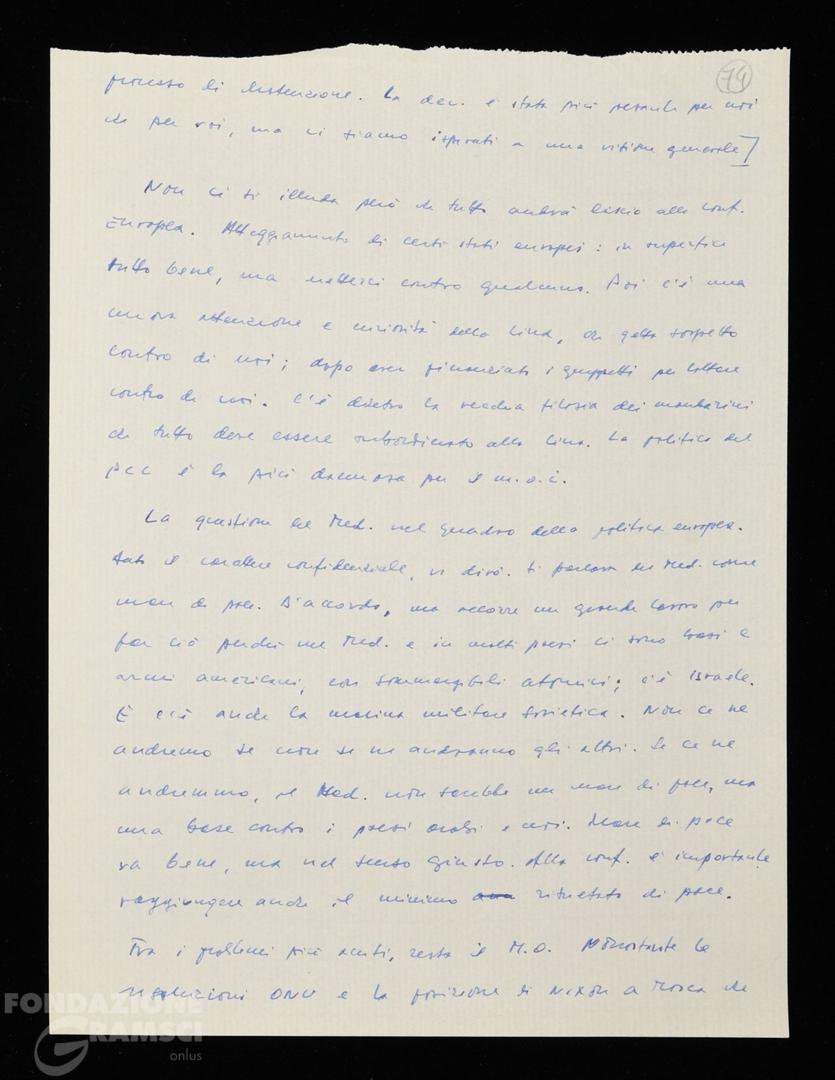 74
processo di distensione. La dec. è stata più pesante per noi
che per voi, ma ci siamo ispirati a una visione generale]
Non ci si illuda però che tutto andrà liscio alla conf.
Europea. Atteggiamento di certi stati europei: in superficie
tutto bene, ma metterci contro qualcuno. Poi c'è una
nuova attenzione e curiosità della Cina, che getta sospetto
contro di noi; dopo aver finanziato i gruppetti per lottare
contro di noi. C'è dietro la vecchia filosofia dei mandarini
che tutto deve essere subordinato alla Cina. La politica del
PCC è la più dannosa per il m.o.i.
La questione del Med. nel quadro della politica europea.
Dato il carattere confidenziale, vi dirò. Si parlava del Med. come
mare di pace. D'accordo, ma occorre un grande lavoro per
far ciò perché nel Med. e in molti paesi ci sono basi e
armi americani, con sommergibili atomici; c'è Israele.
E c'è anche la marina militare sovietica. Non ce ne
andremo se non se ne andranno gli altri. Se ce ne
andremmo, il Med. non sarebbe un mare di pace, ma
una base contro i paesi arabi e noi. Mare di pace
va bene, ma nel senso giusto. Alla conf. è importante
raggiungere anche il minimo risultato di pace.
Tra i problemi più acuti, resta il M.O. Nonostante le
risoluzioni ONU e la posizione di Nixon a Mosca che
FONDAZIONE
GRAMSCI
onlus